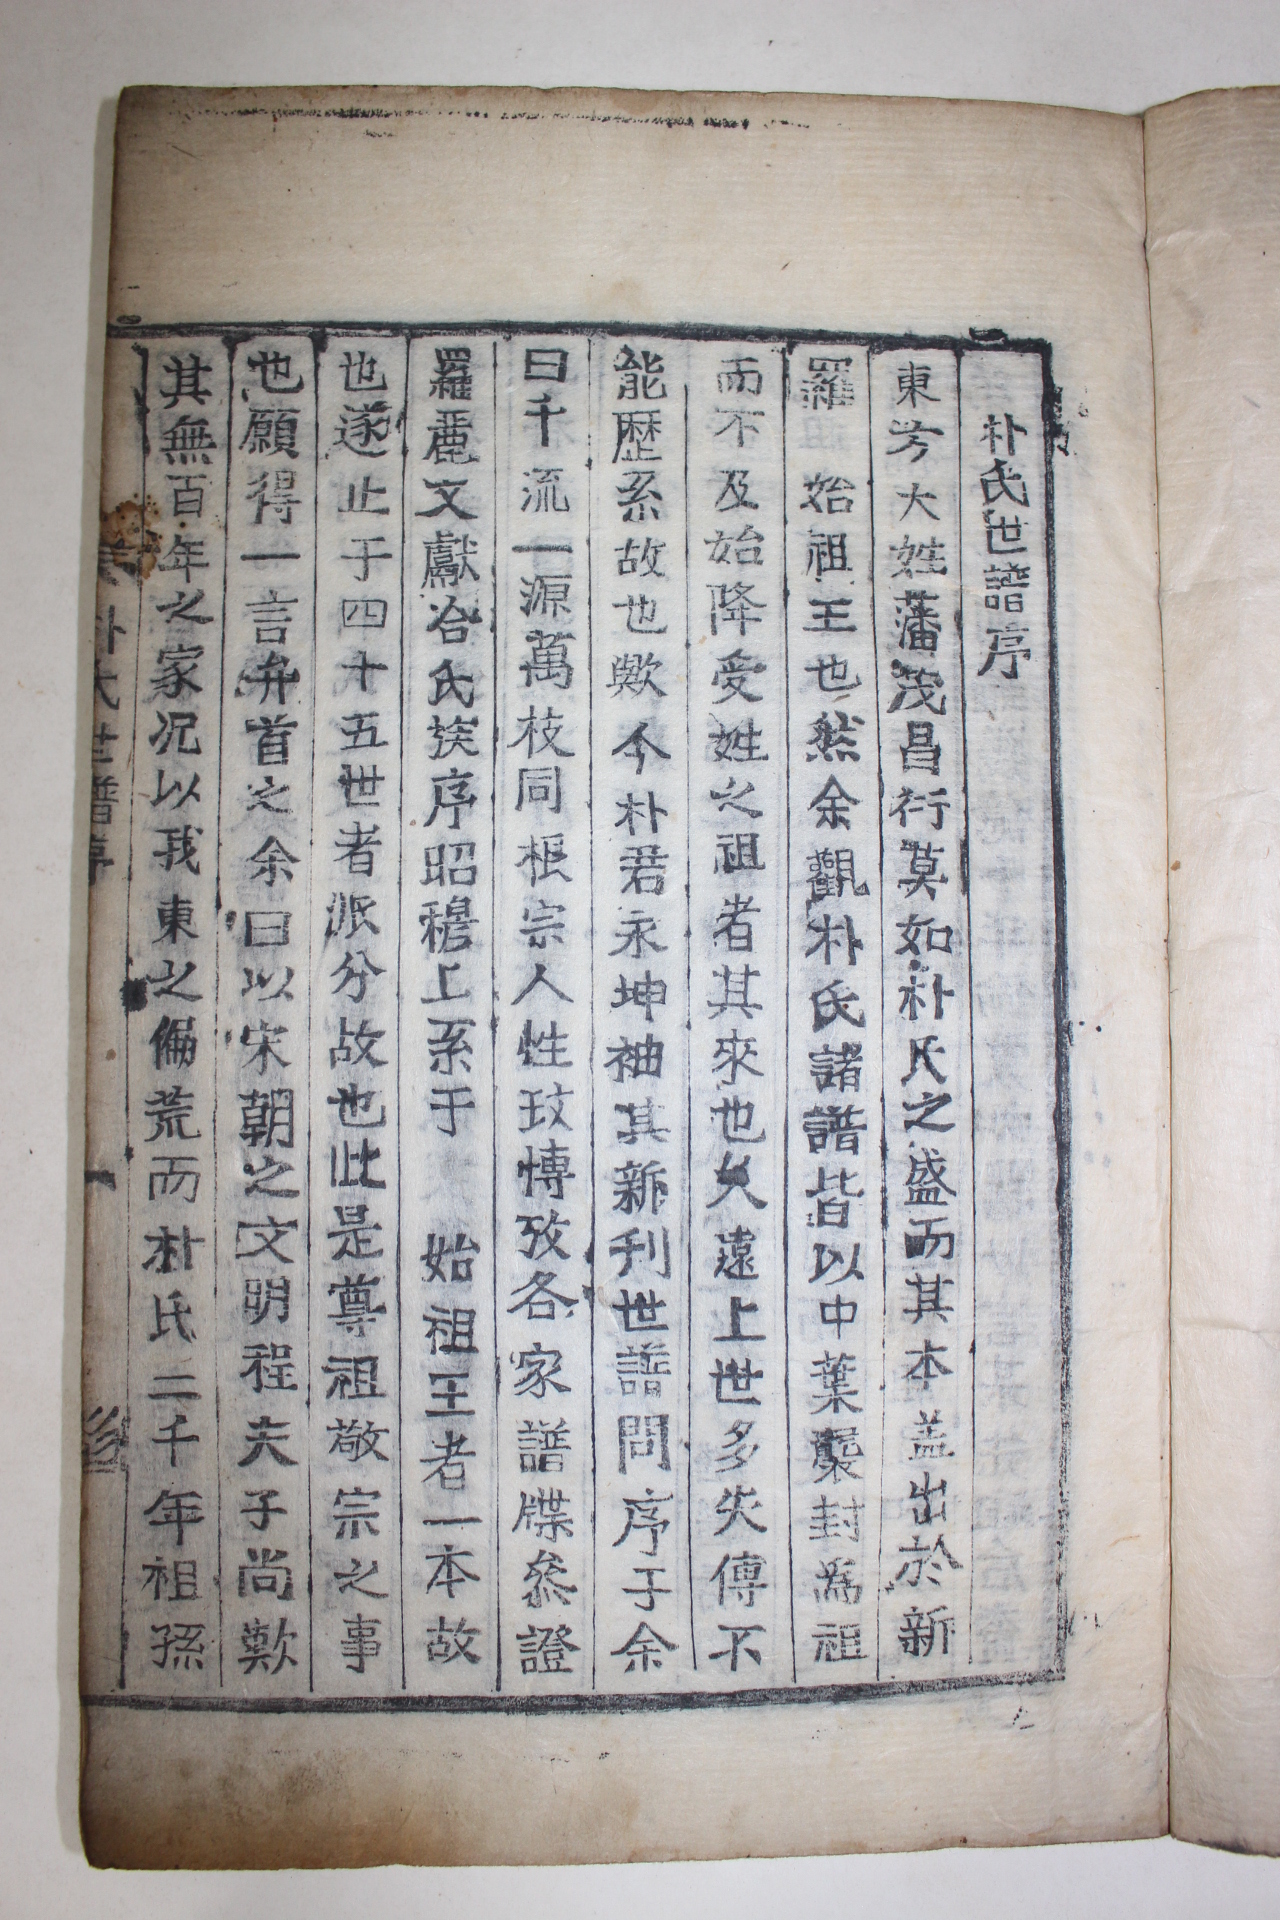 朴氏世譜序
東方大姓藩茂昌衍莫如朴氏之盛而其本盖出於新
羅 始祖王也然余觀朴氏諸譜皆以中葉襲封爲祖
而不及始降受姓之祖者其來也久遠上世多失傳不
能歷系故也歟今朴君永坤袖其新刊世譜問序于余
曰千流一源萬枝同根宗人性玟慱攷各家譜牒叅證
羅麗文獻洽氏族序昭穆上系于 始祖王者一本故
也遂止于四十五世者派分故也此是尊祖敬宗之事
也願得一言弁首之余曰以宋朝之文明程夫子尚歎
其無百年之家况以我東之偏荒而朴氏二千年祖孫
朴氏世譜序